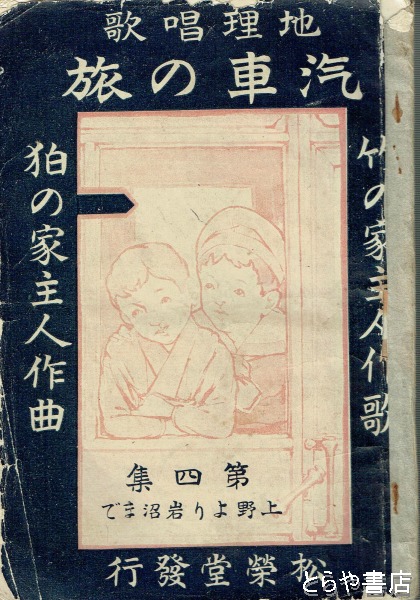 地理唱歌
汽車の旅
竹の家主人作歌
狛の家主人作曲
第四集
上野より岩沼まで
松榮堂發行
とらや書店